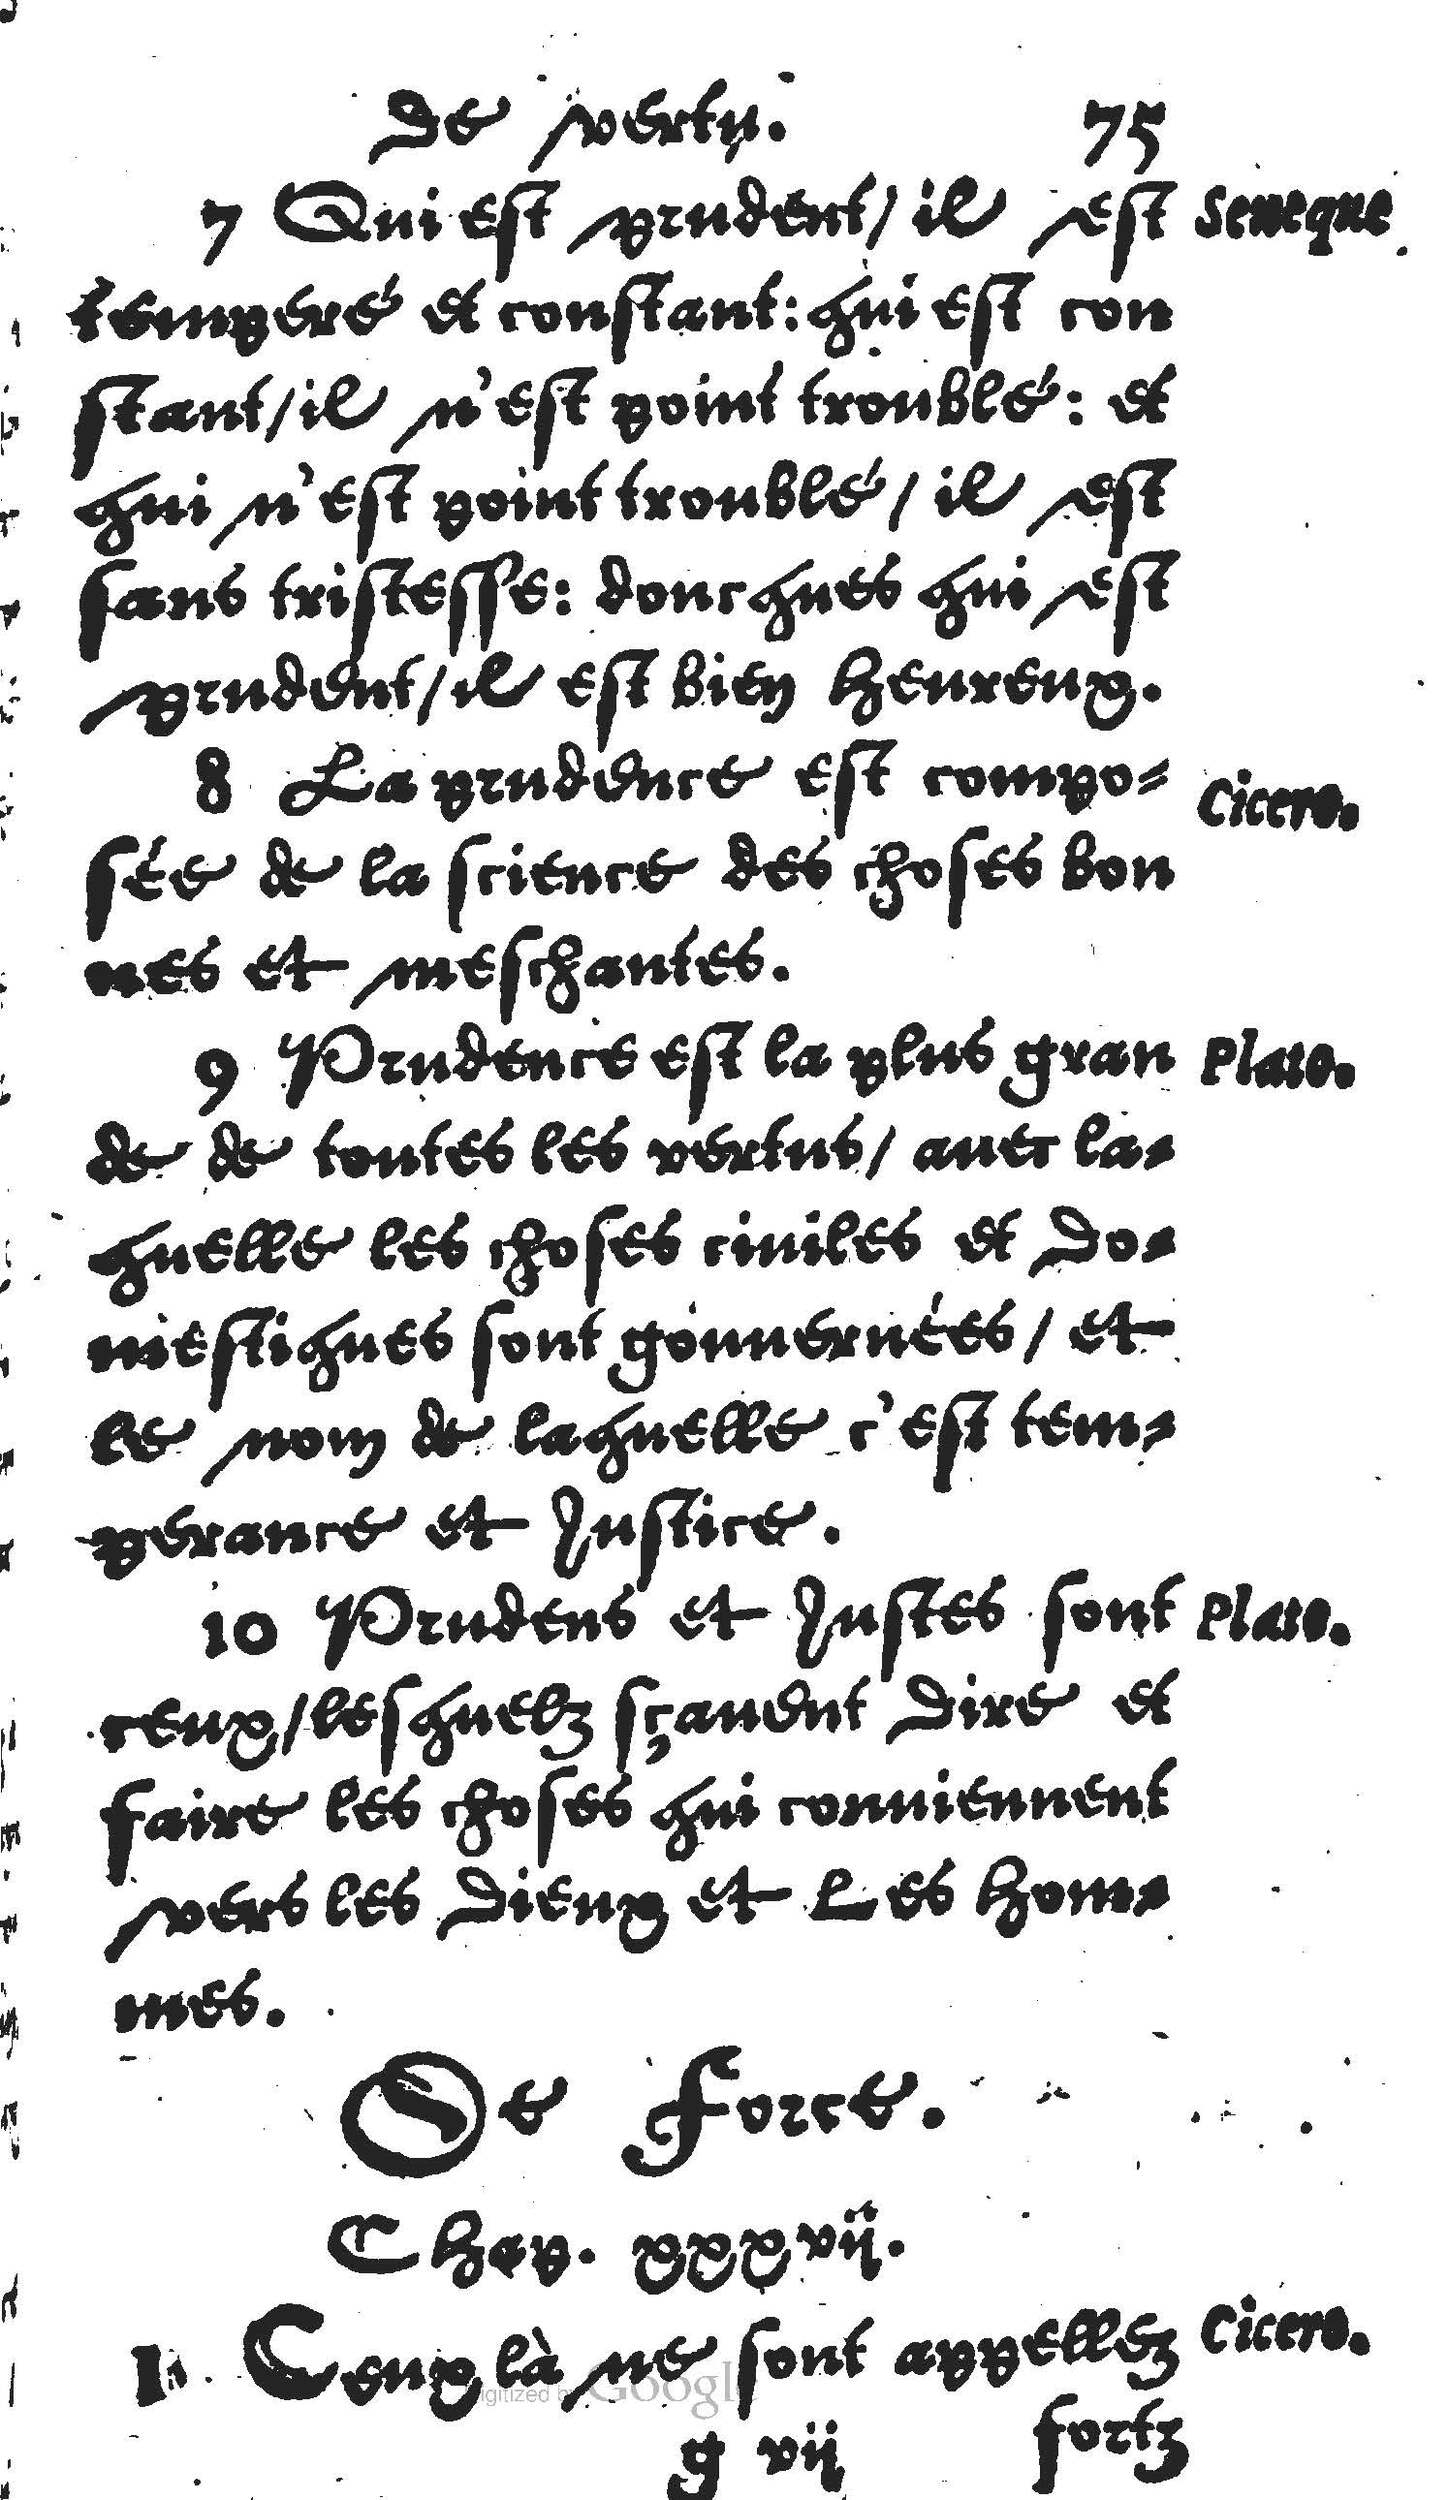 de vertu. 75
7 Qui est prudent/ il est Seneque
temperé et constant: qui est con
stant/ il n'est point troublé: et
qui n'est point troublé/ il est
sans tristesse: doncques qui est
prudent/ il est bien heureux.
8 La prudence est compo= Cicero.
sée de la science des choses bon
nes et meschantes.
9 Prudence est la plus gran Plato.
de de toutes les vertus/ auec la=
quelle les choses ciuiles et do=
mestiques sont gouuernées/ et
le nom de laquelle c'est tem=
perance et Justice.
10 Prudens et Justes sont Plato.
ceux/ lesquelz sçauent dire et
faire les choses qui conuiennent
vers les dieux et Les hom=
mes.
De Force.
Chap. xxxvij.
1 Ceux là ne sont appellez Cicero.
Digitized by Google
g vij fortz